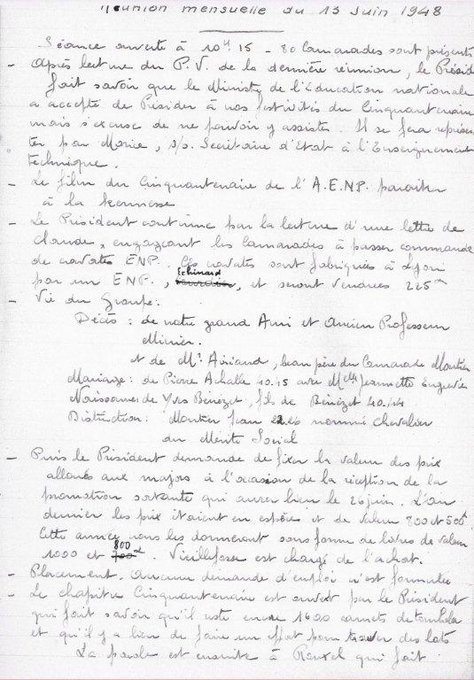 Réunion mensuelle du 13 Juin 1948
Séance ouverte à 10h15 - 80 Camarades sont présents
- Après lecture du P.V. de la dernière réunion, le Présid
fait savoir que le Ministre de l'Education nationale
a accepté de Présider à nos festivités du Cinquantenaire
mais s'excuse de ne pouvoir y assister. Il se fera représen
ter par Morice, s/s. Secrétaire d'Etat à l'Enseignement
technique.
- Le film du Cinquantenaire de l'A.E.NP. paraitra
à la Kermesse
- Le Président continue par la lecture d'une lettre de
Claude, engageant les Camarades à passer commande
de cravates ENP. Ces cravates sont fabriquées à Lyon
par un ENP., Echinard, et seront vendues 225
- Vie du Groupe:
Décès: de notre grand Ami et Ancien Professeur
Minier.
et de Mr. beau père du Camarade Moutien
Mariage: de Pierre Achalle 10.15 avec Melle Jeannette
Naissances: de Yves Bénézet, fils de Bénézet 40.44
Distinction: Moutien Jean nommé Chevalier
du Mérite Social
- Puis le Président demande de fixer la valeur des prix
alloués aux majors à l'occasion de la réception de la
promotion sortante qui aura lieu le 26 juin. L'an
dernier les prix étaient en espèces et de valeur et
Cette année nous les donnerons sous forme de livres de valeur
1000 et 800. Vieillefosse est chargé de l'achat.
- Placement. Aucune demande d'emploi n'est formulée
- Le chapitre Cinquantenaire est ouvert par le Président
qui fait savoir qu'il reste encore 1600 carnets de tombola
et qu'il y a lieu de faire un effort pour trouver des lots
La parole est ensuite à qui fait